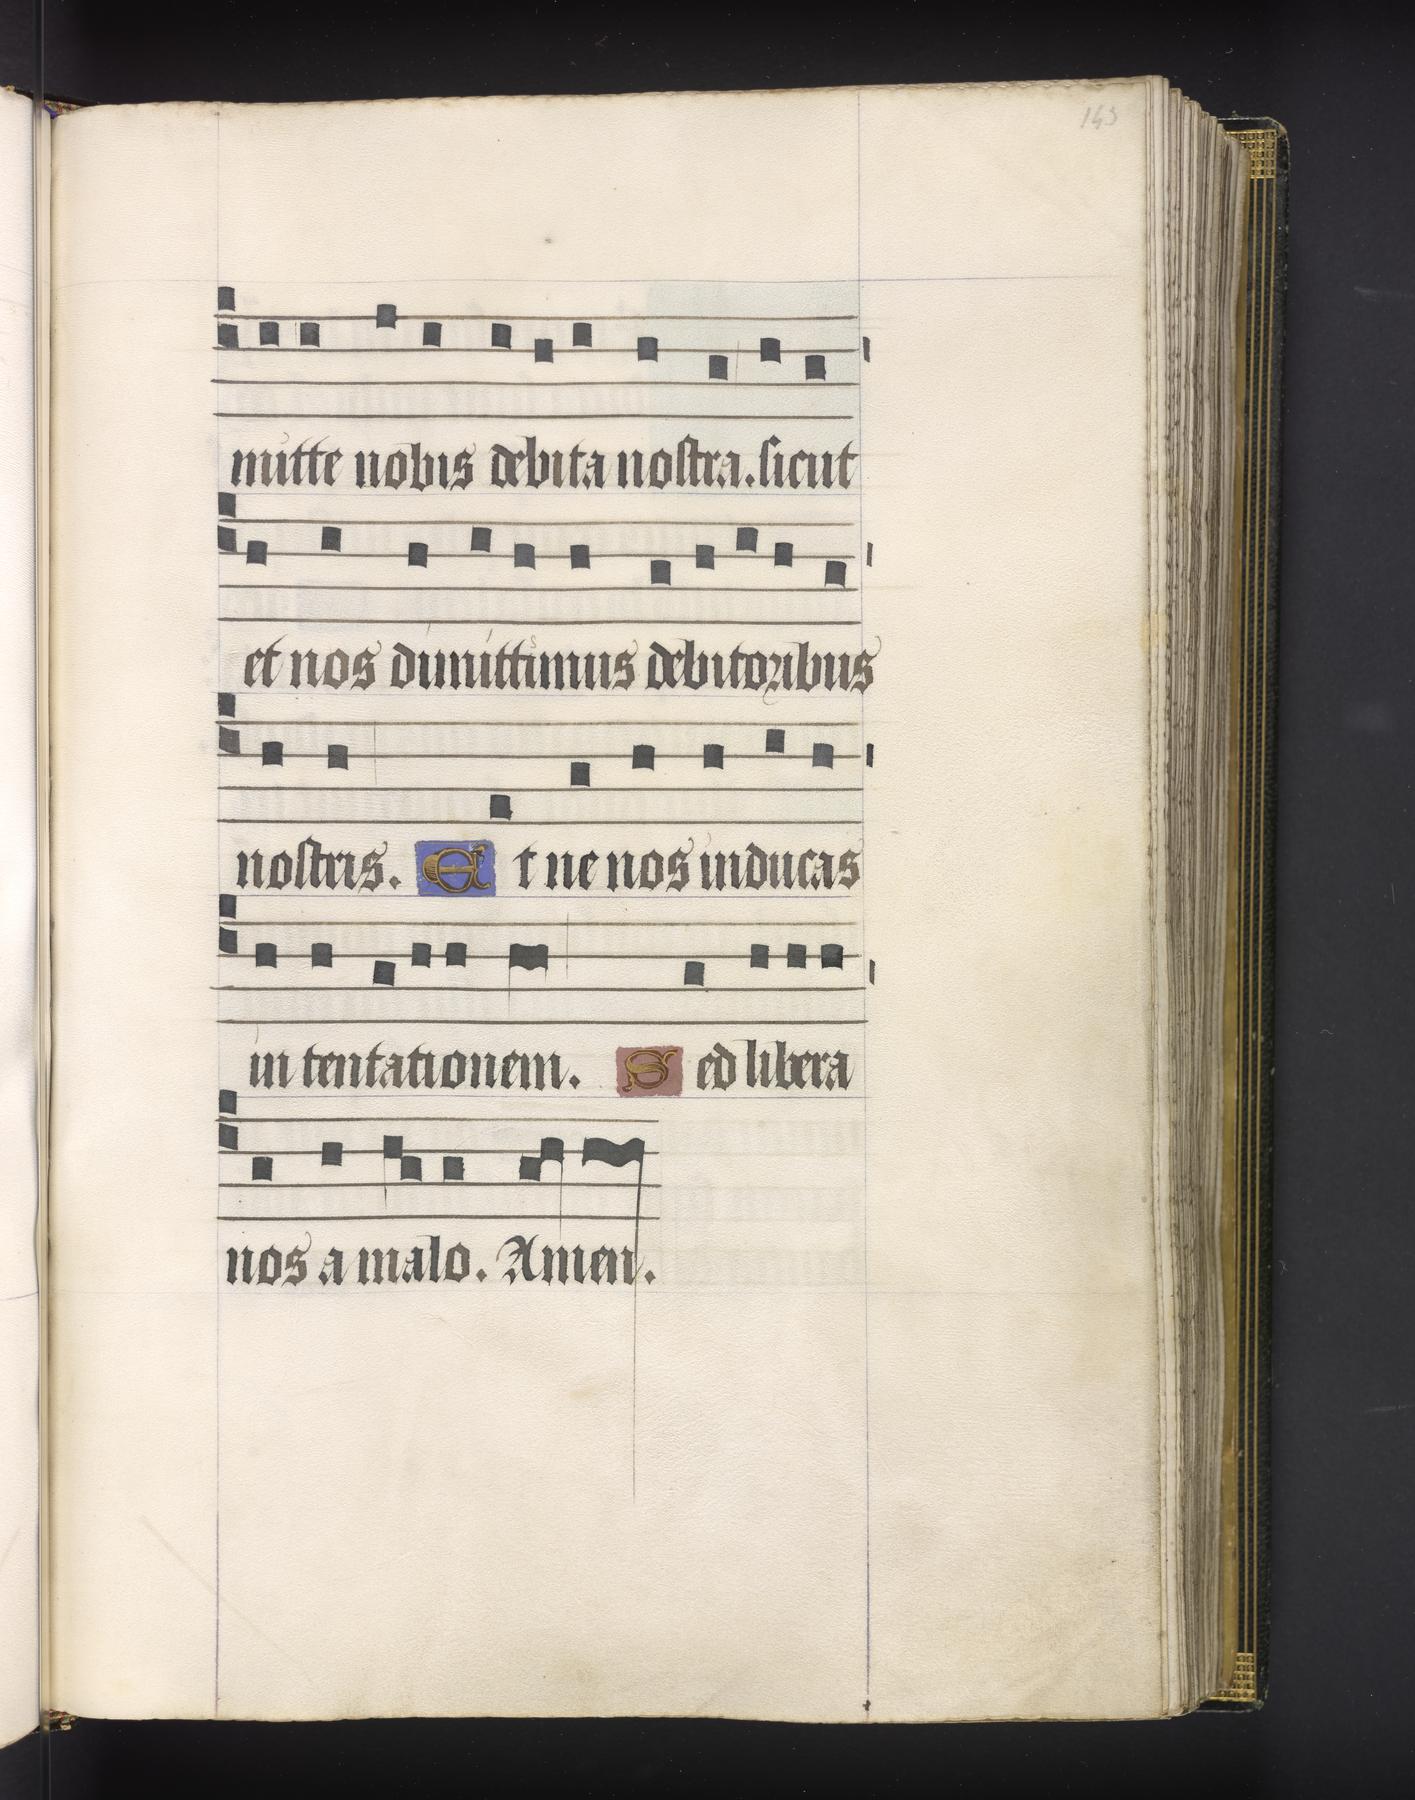 143
mitte nobis debita nostra. sicut
et nos dimittimus debitoribus
nostris. Et ne nos inducas
in tentationem. Sed libera
nos a malo. Amen.